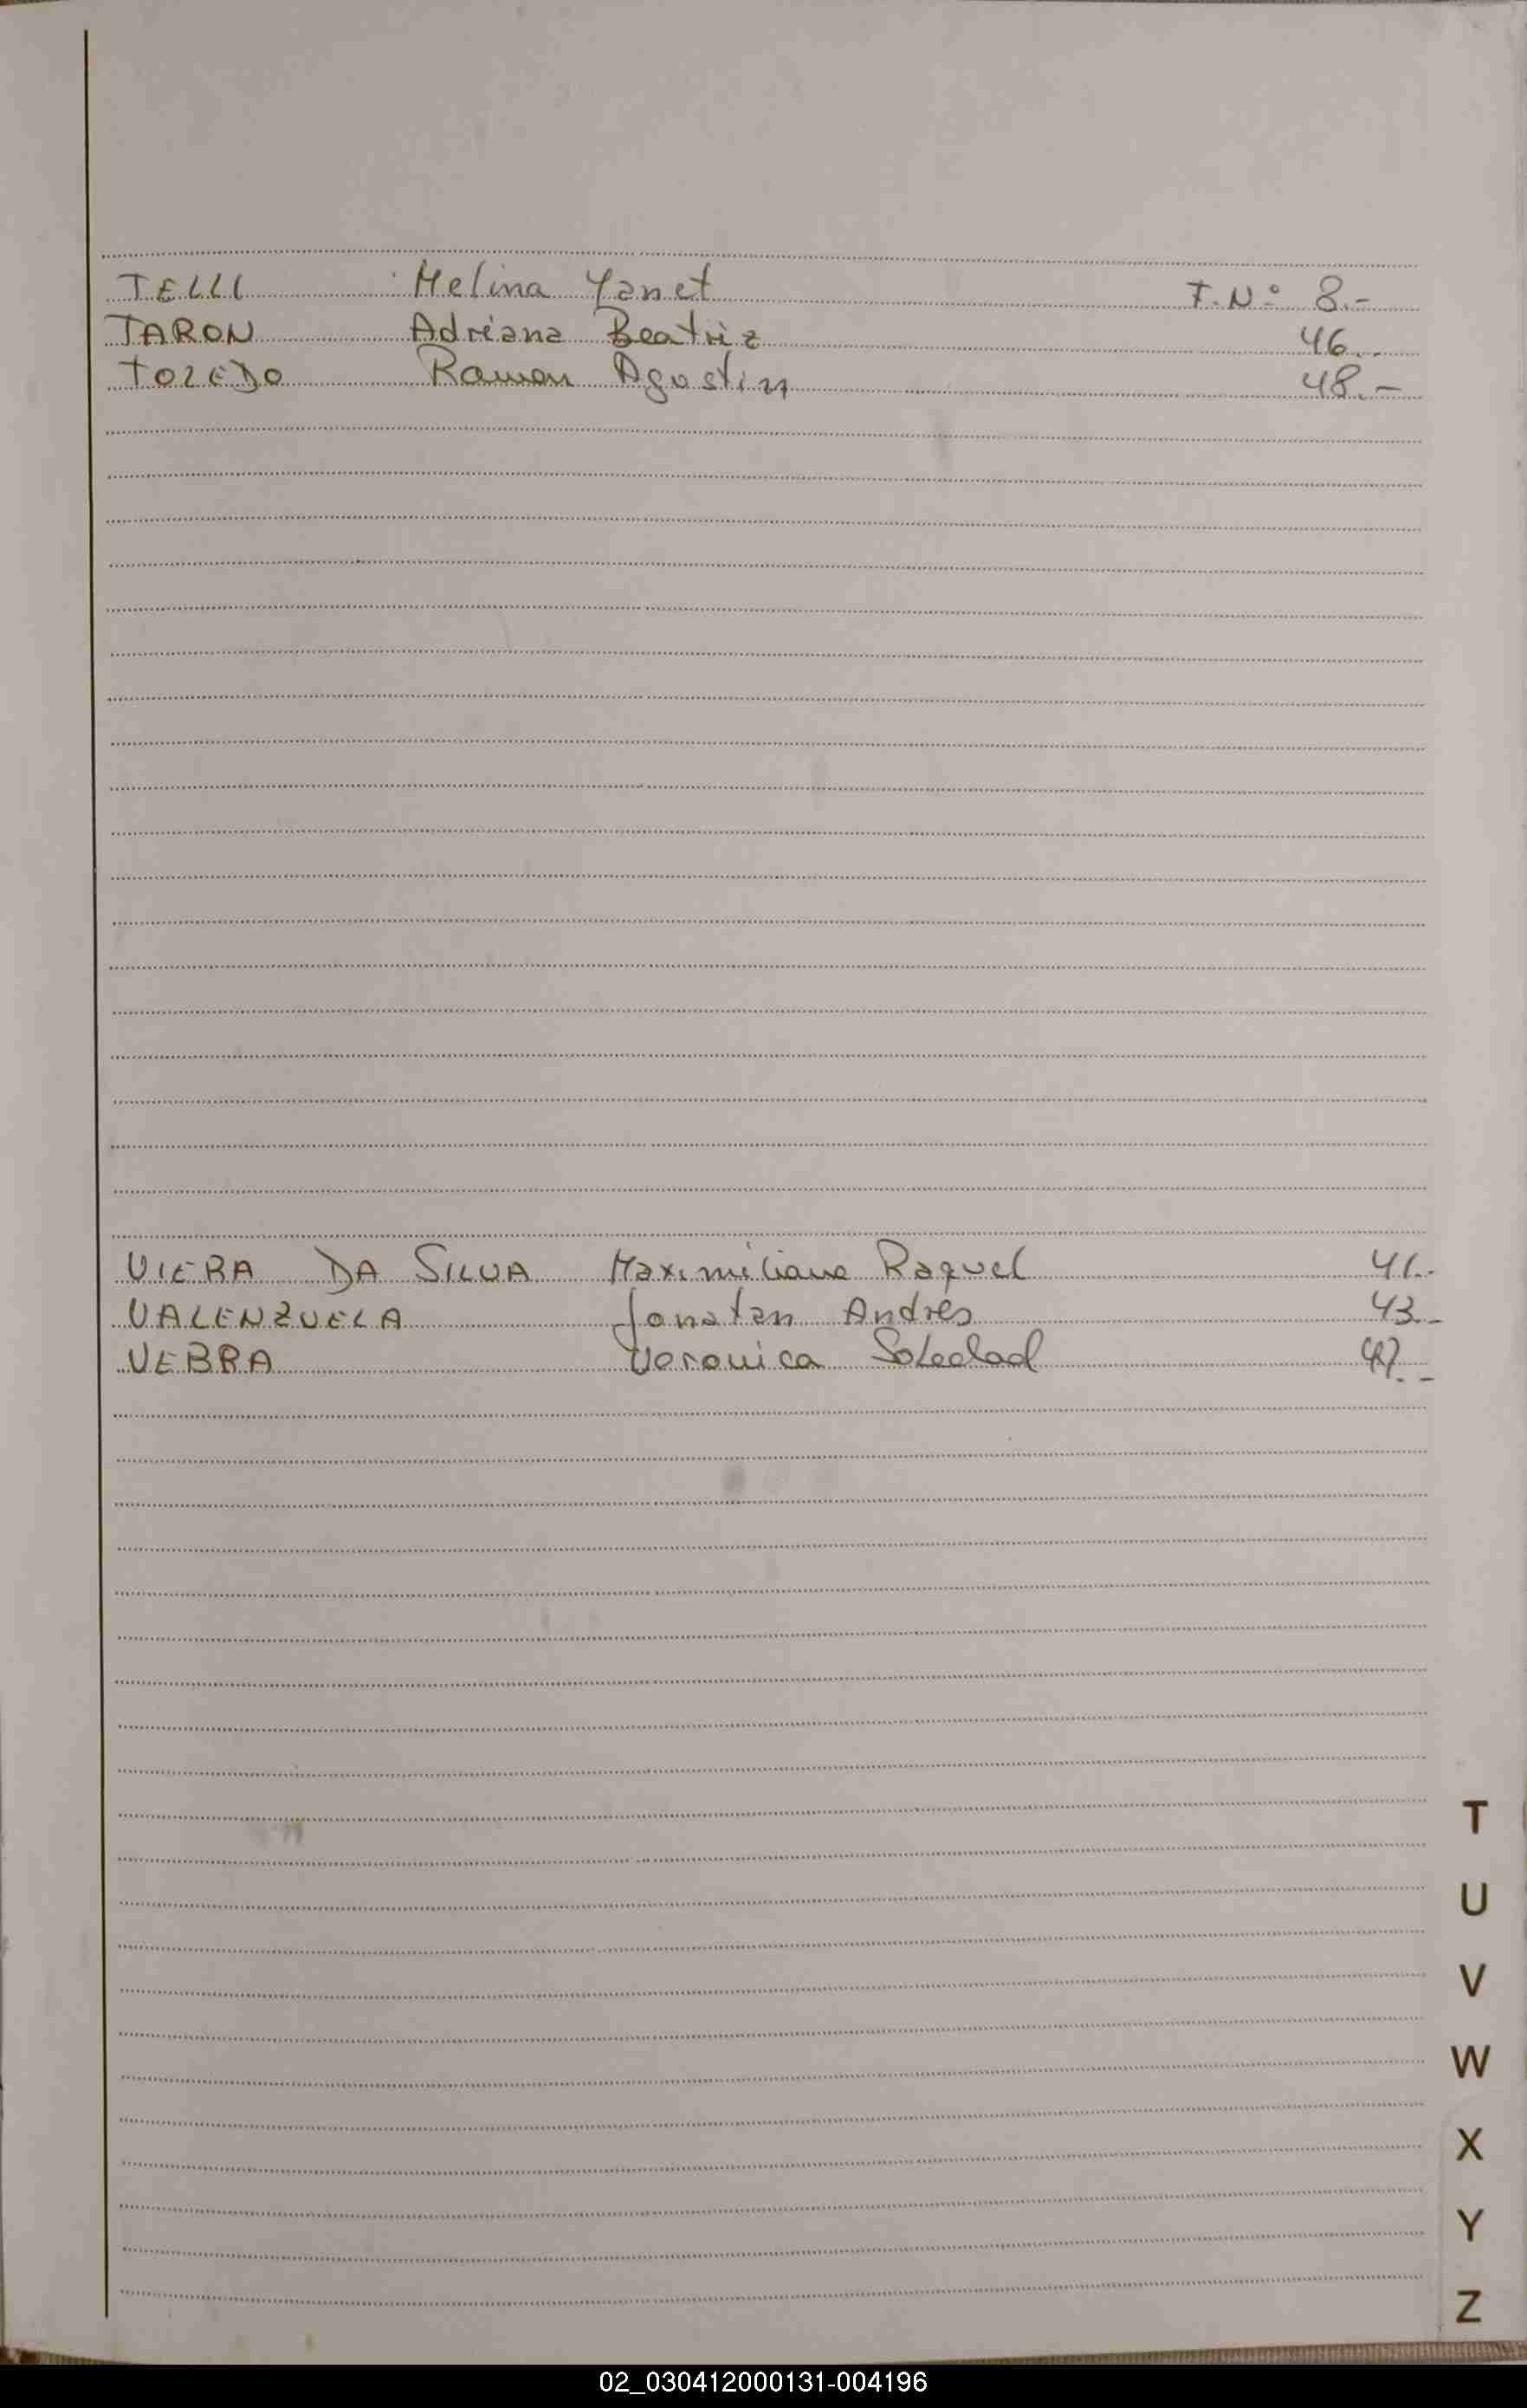 TELLI Melina Yanet T.Nº 8.-
TARON Adriana Beatriz 46.-
TOLEDO Ramon Agustin 48.-
VIERA DA SILVA Maximiliano Raquel 41.-
VALENZUELA Jonatan Andres 43.-
VEBRA Veronica Soledad 47.-
T
U
V
W
X
Y
Z
02_030412000131-004196